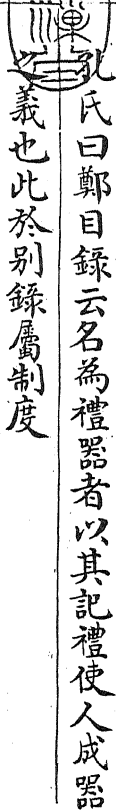 孔氏曰鄭目錄云名為禮器者以其記禮使人成器
之義也此於别錄屬制度